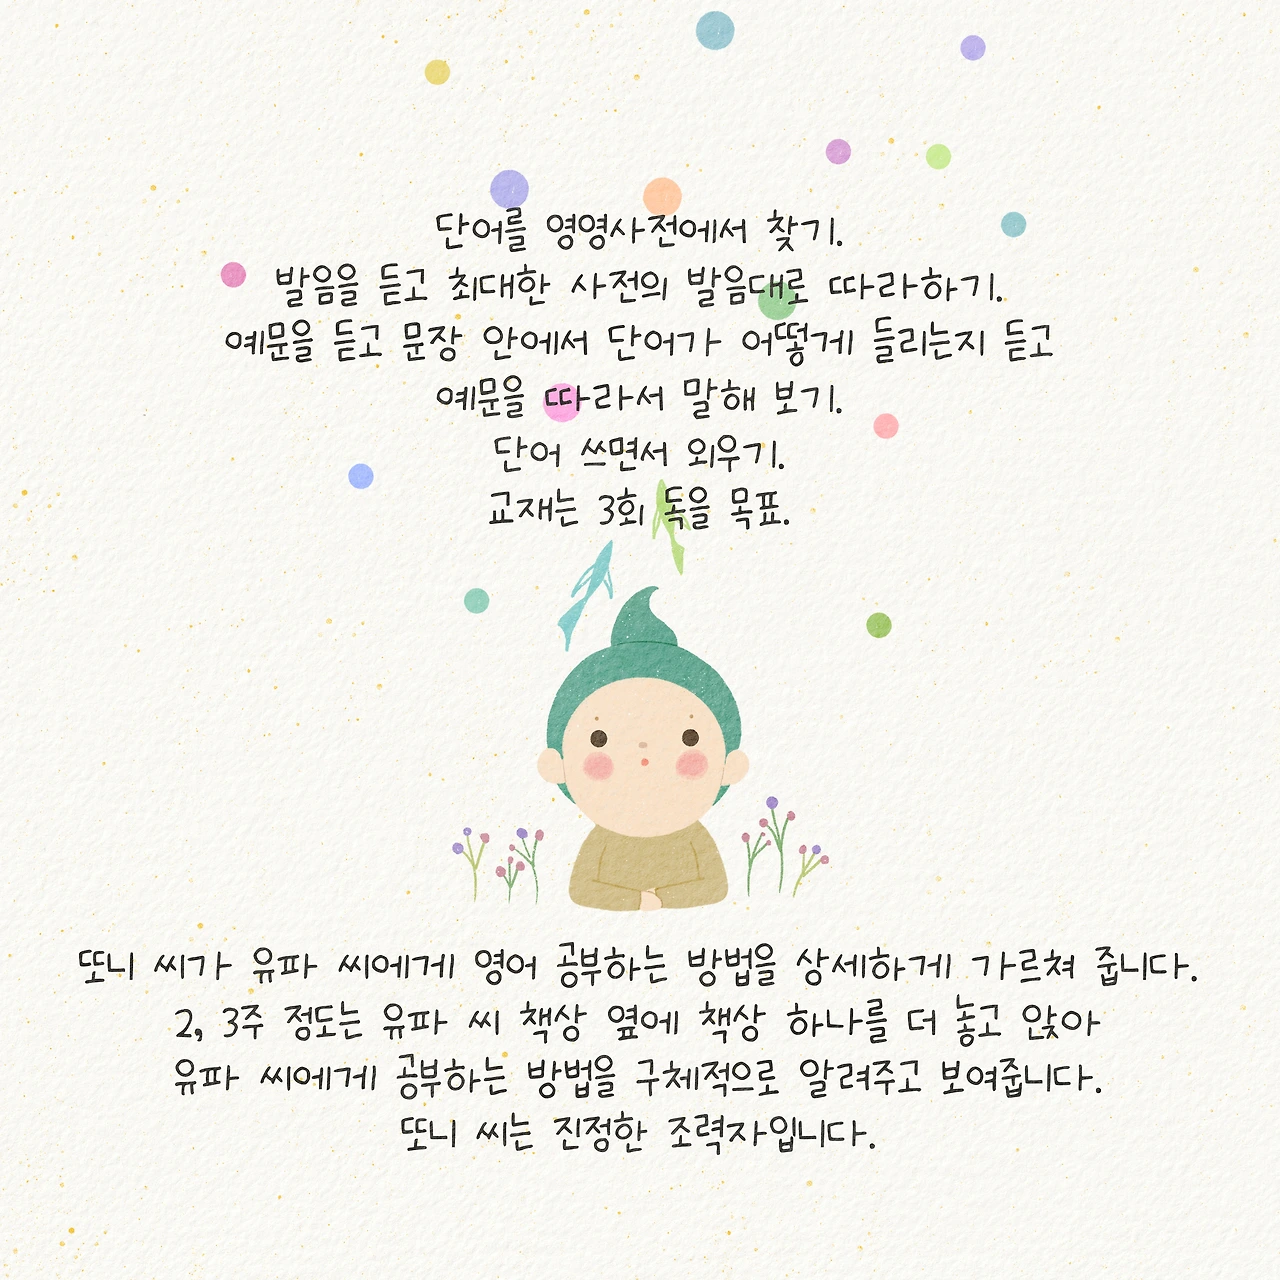 단어를 영영사전에서 찾기.
발음을 듣고 최대한 사전의 발음대로 따라하기.
예문을 듣고 문장 안에서 단어가 어떻게 들리는지 듣고
예문을 따라서 말해 보기.
단어 쓰면서 외우기.
교재는 3회 독을 목표.
또니 씨가 유파 씨에게 영어 공부하는 방법을 상세하게 가르쳐 줍니다.
2, 3주 정도는 유파 씨 책상 옆에 책상 하나를 더 놓고 앉아
유파 씨에게 공부하는 방법을 구체적으로 알려주고 보여줍니다.
또니 씨는 진정한 조력자입니다.